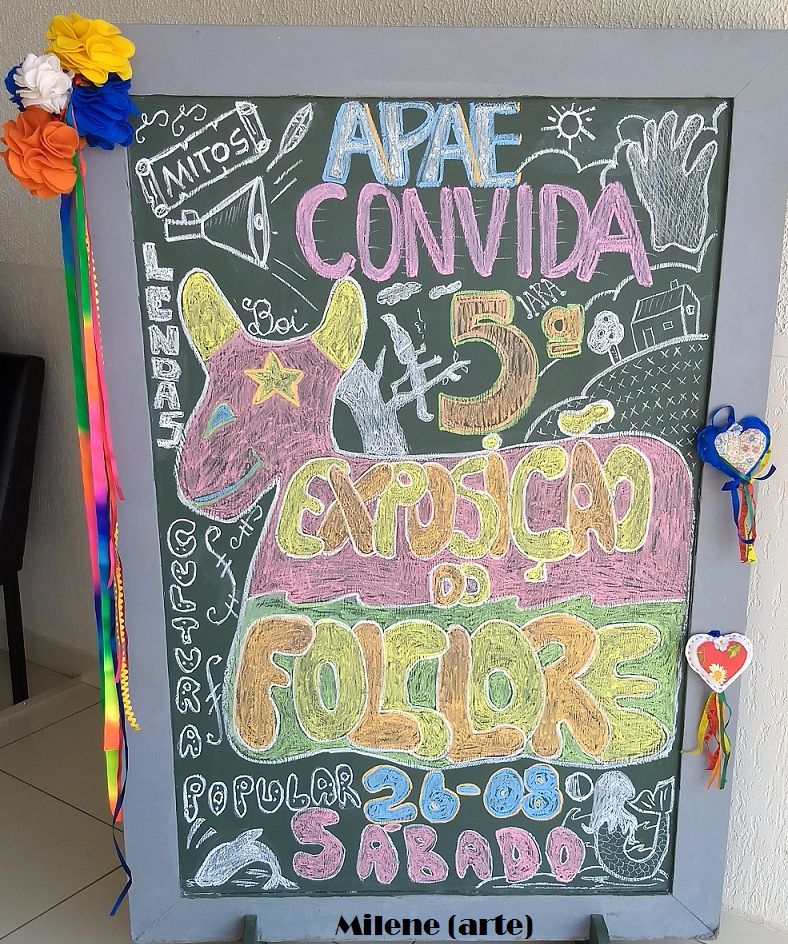 MITOS
APAE
CONVIDA
LENDAS
Boi
JARA
5ª
EXPOSIÇÃO
DO
FOLCLORE
CULTURA
POPULAR 26-08
SÁBADO
Milene (arte)